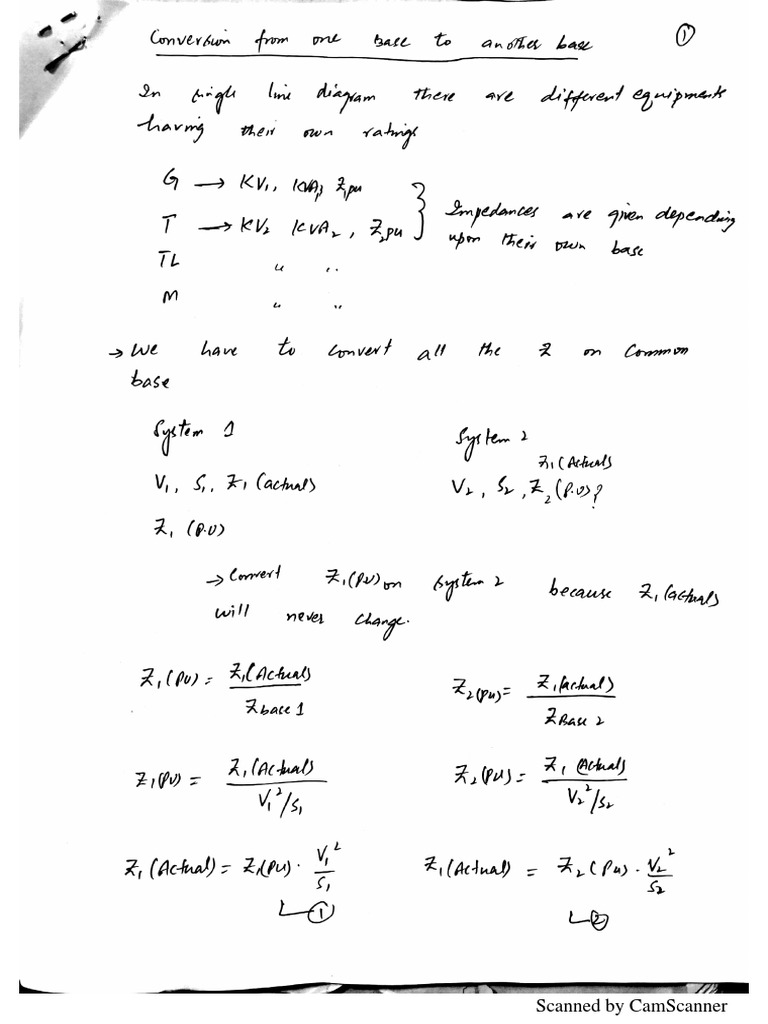 Conversion from one Base to another base
1
In single line diagram there are different equipments
having their own ratings
G → KV₁, KVA₁, Z₁pu
T → KV₂ KVA₂, Z₂pu
Impedances are given depending
upon their own base
TL " "
M " "
→ We have to convert all the Z on common
base
System 1
System 2
Z₁(Actual)
V₁, S₁, Z₁ (actual)
V₂, S₂, Z₂ (P.U)?
Z₁ (P.U)
→ Convert Z₁(PU) on system 2 because Z₁(actual)
will never change.
Z₁(PU) = Z₁(Actual) / Zbase 1
Z₂(PU) = Z₁(actual) / ZBase 2
Z₁(PU) = Z₁(Actual) / V₁²/S₁
Z₂(PU) = Z₁(Actual) / V₂²/S₂
Z₁(Actual) = Z₁(PU) · V₁²/S₁
Z₁(Actual) = Z₂(PU) · V₂²/S₂
1
2
Scanned by CamScanner